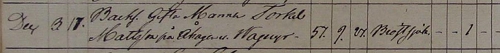 Dec 3 17. Backst. Gifta Mannen Torkel
Mattsson på Åhagen u. Wagnyr- 57. 9. 21. Bröstsjuk. - - 1 -